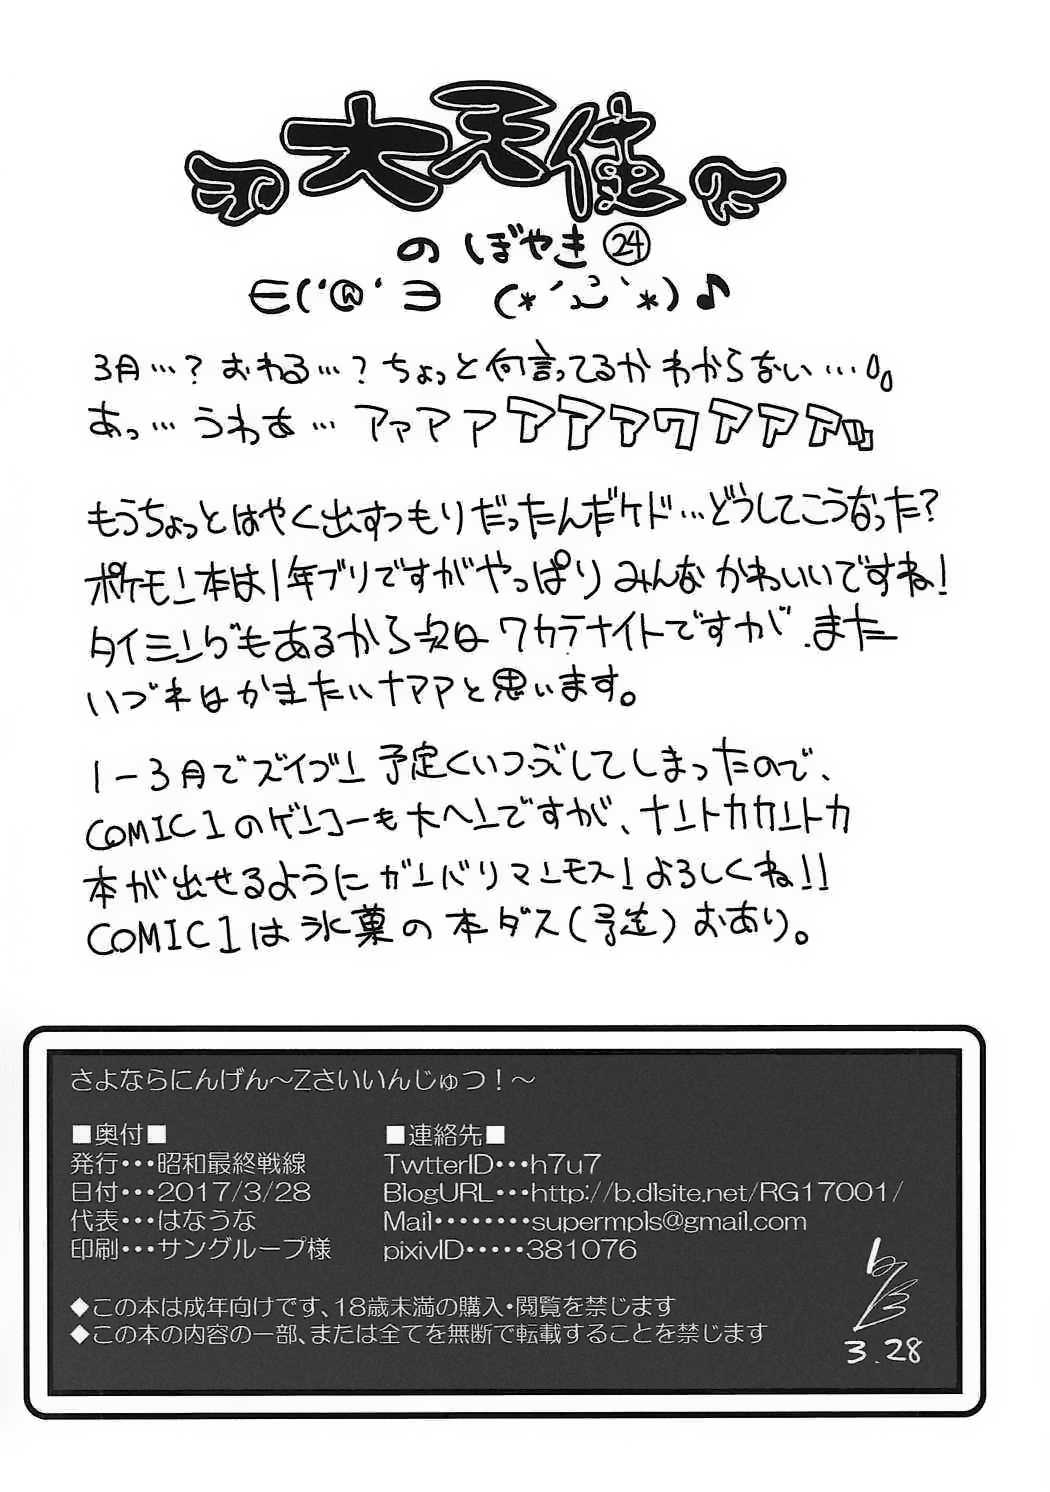 大天使
のぼやき㉔
∈('@'∋ (*´ω`*)♪
3月…?おわる…?ちょっと何言ってるかわからない…
あっ…うわあ…アァアアアアァワアアアッ
もうちょっとはやく出すつもりだったんだケド…どうしてこうなった?
ポケモン本は1年ブリですがやっぱりみんなかわいいですね!
タイミングもあるから次はワカラナイトですが、また
いづれはかきたいナァァと思います。
1-3月でズイブン予定くいつぶしてしまったので、
COMIC1のゲンコーも大ヘンですが、ナントカカントカ
本が出せるようにガンバリマンモス!よろしくね!!
COMIC1は氷菓の本ダス(予定)おあり。
さよならにんげん～Zさいいんじゅつ！～
■奥付■
発行・・・昭和最終戦線
日付・・・2017/3/28
代表・・・はなうな
印刷・・・サングループ様
■連絡先■
TwtterID・・・h7u7
BlogURL・・・http://b.dlsite.net/RG17001/
Mail・・・・・・・・supermpls@gmail.com
pixivID・・・・・381076
◆この本は成年向けです、18歳未満の購入・閲覧を禁じます
◆この本の内容の一部、または全てを無断で転載することを禁じます
3.28